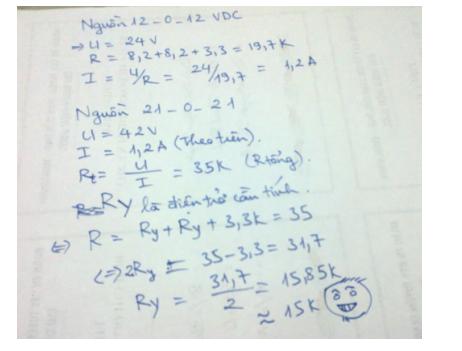 Nguồn 12-0-12 VDC
=> U = 24V
R = 8,2+8,2+3,3 = 19,7K
I = U/R = 24/19,7 = 1,2A
Nguồn 21-0-21
U = 42V
I = 1,2A (Theo trên).
Rt = U/I = 35K (Rtổng).
Ry là điện trở cần tính.
<=> R = Ry + Ry + 3,3K = 35
<=> 2Ry = 35-3,3 = 31,7
Ry = 31,7/2 = 15,85K
≈ 15K